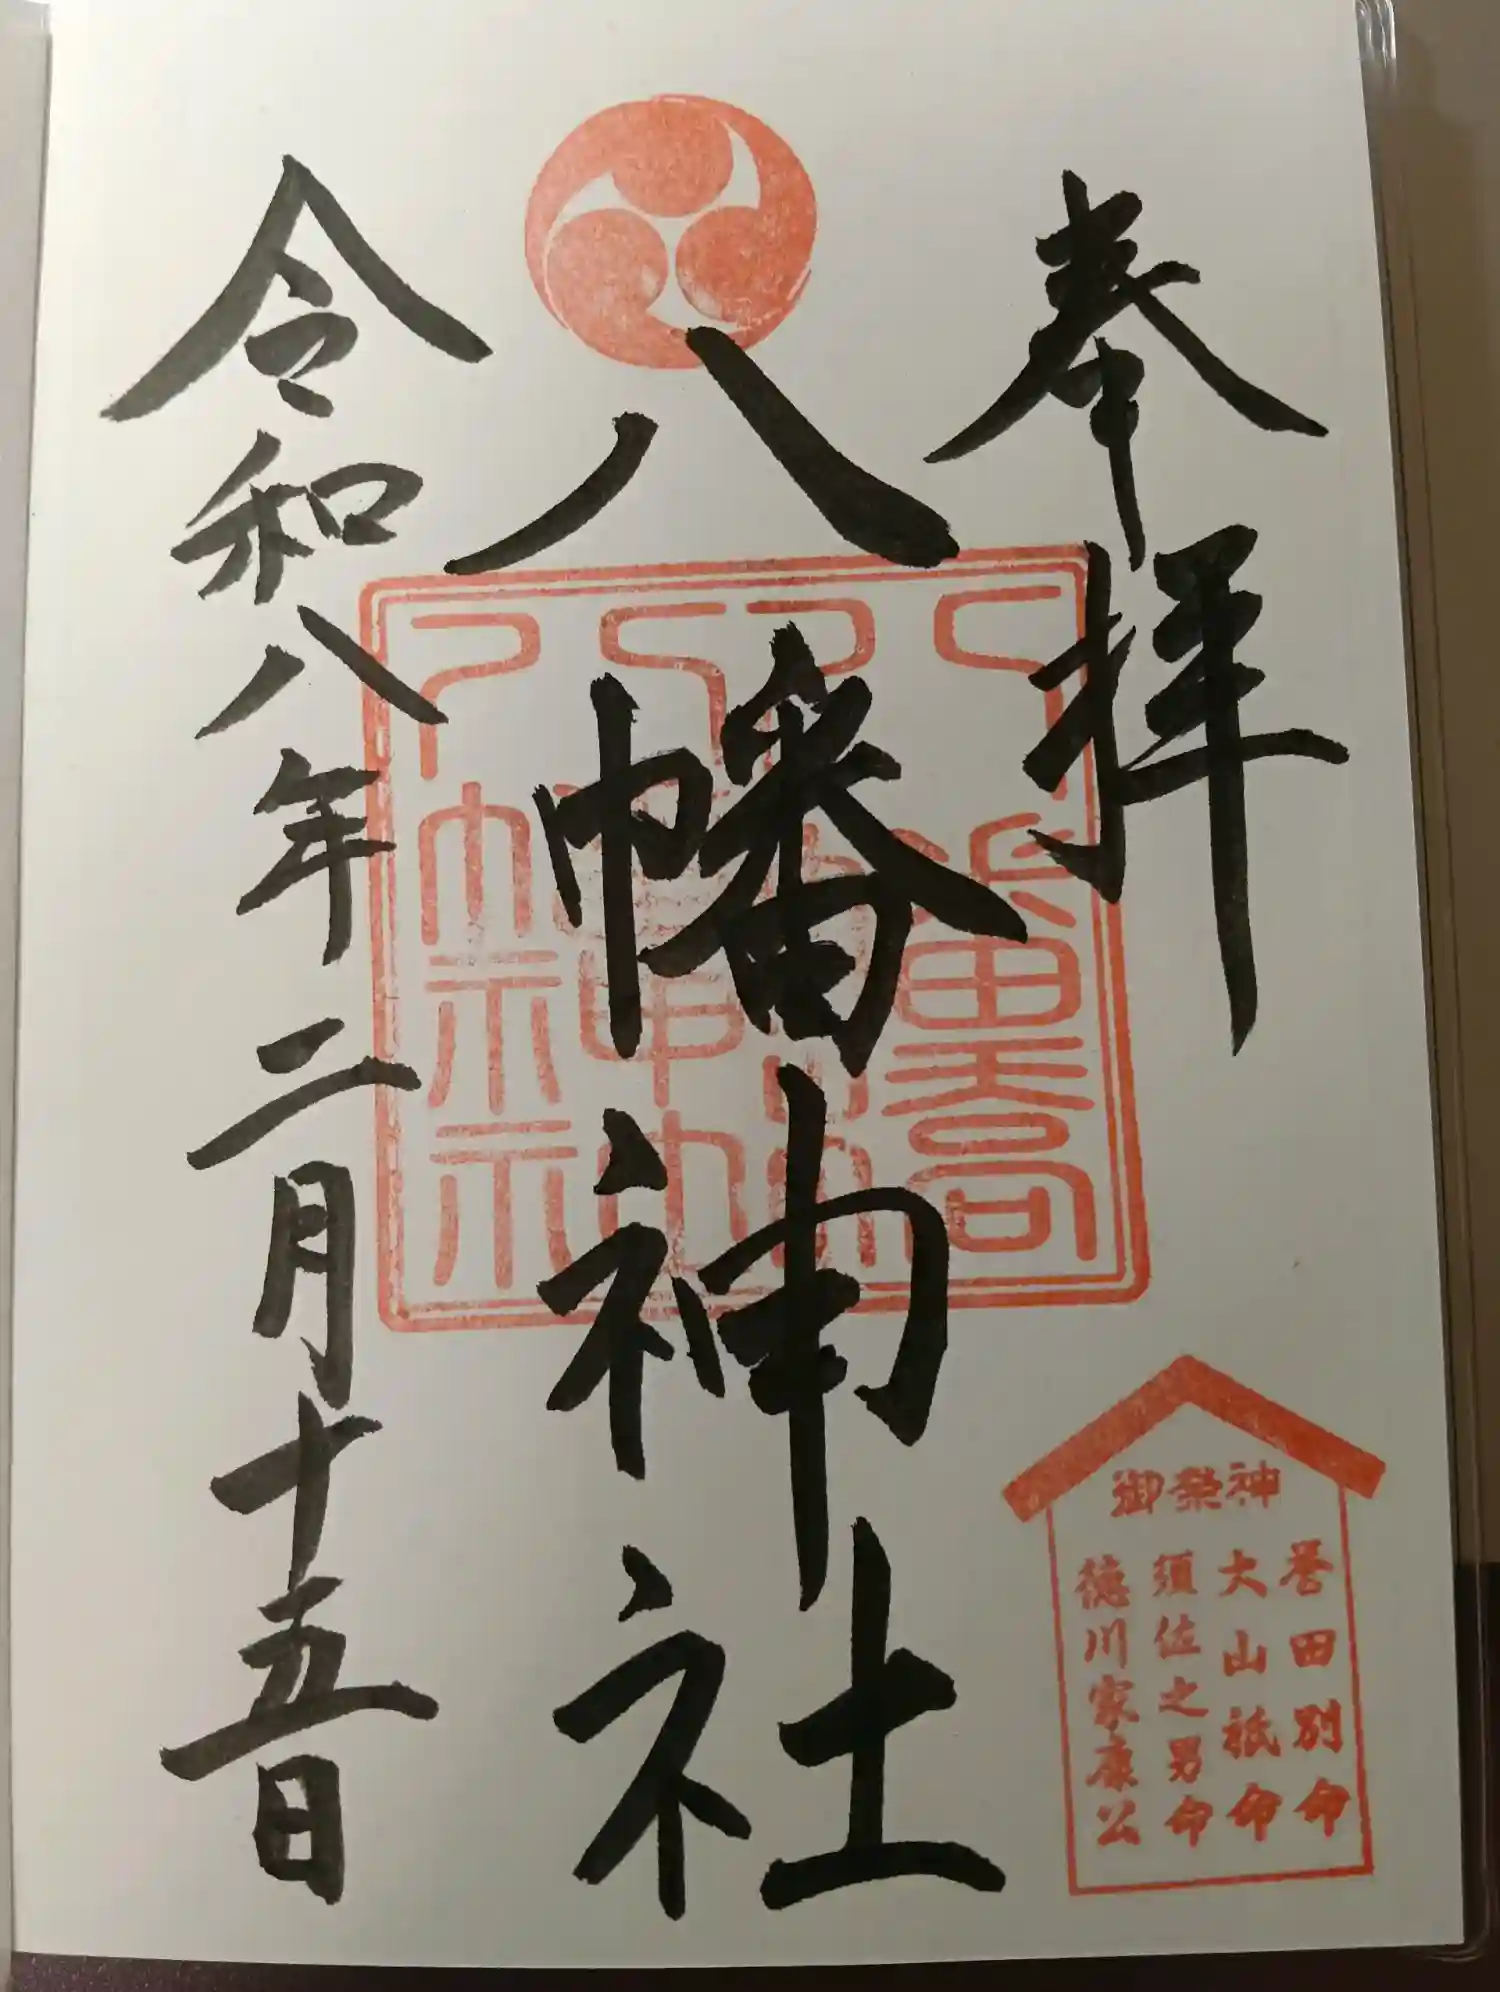 奉拝
八幡神社
令和八年二月十五日
御祭神
誉田別命
大山祇命
須佐之男命
徳川家康公